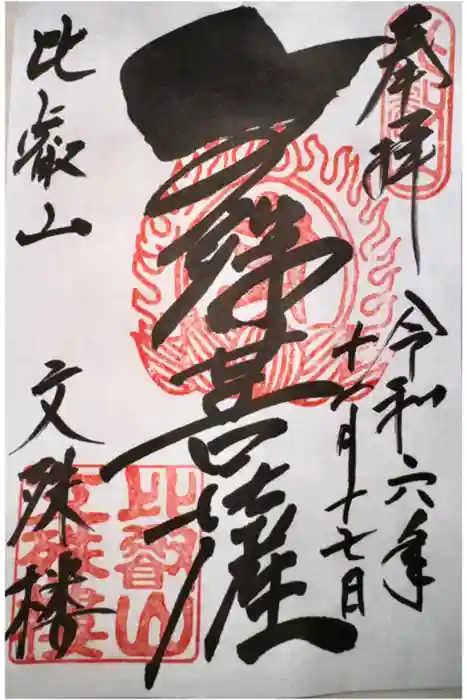 奉拝
令和六年
十二月十七日
文殊菩薩
比叡山
文殊楼
比叡山
文殊楼